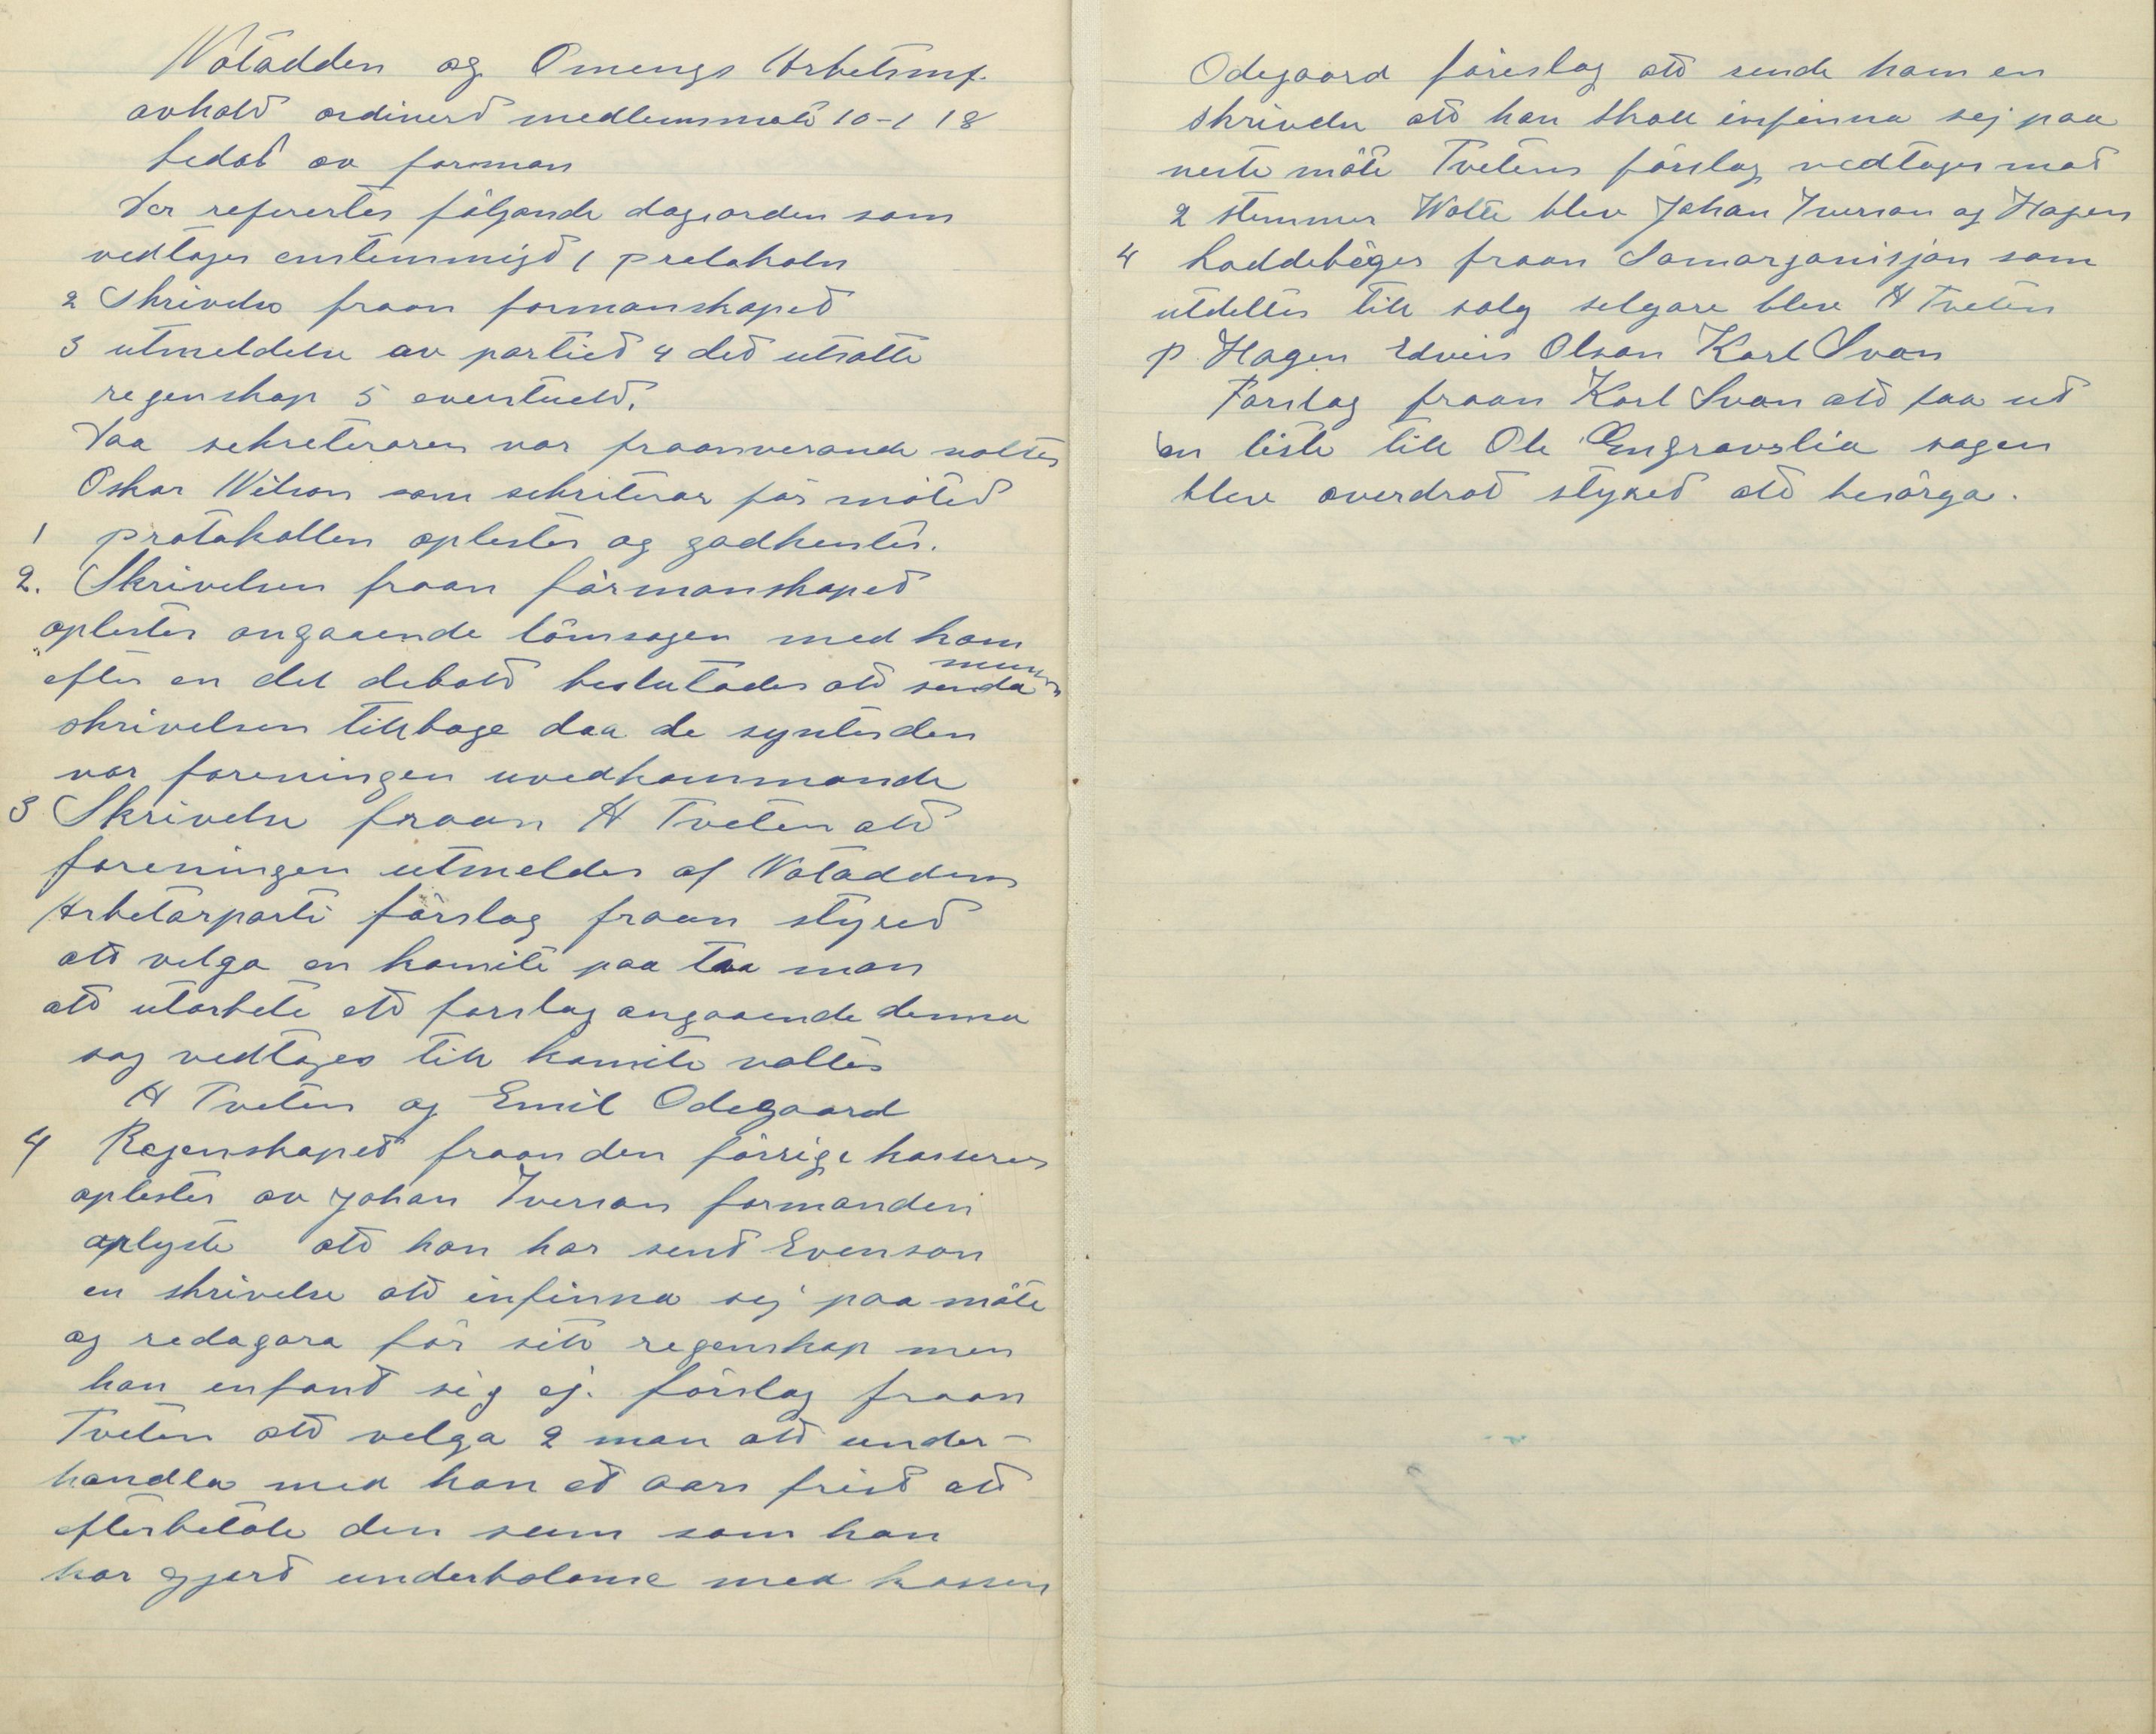 Notodden og Omengs Arbetsmf.
avholt ordinert medlemmøte 10-1 18
ledet av forman
Der referertes følgande dagsorden som
vedtoges enstemmigt 1 protokoln
2 Skrivelse fraan formanskapet
3 utmeldelse av partiet 4 det utsatte
regenskap 5 eventuelt.
Daa sekreteraren var fraanverande valtes
Oskar Nilson som sekriterar för mötet
1 protokollen oplestes og godkentes.
2. Skrivelsen fraan förmanskapet
oplestes angaaende tömsagen med kom
munen
efter en del debatt beslutades att senda
skrivelsen tillbage daa de syntes den
var foreningen uvedkommande
3 Skrivelse fraan H Tveten att
foreningen utmeldes af Notoddens
Arbetarparti förslag fraan styret
att velga en komite paa tvaa man
att utarbete ett forslag angaaende denna
sag vedtoges till komite valtes
H Tveten og Emil Odegaard
4 Regenskapet fraan den förrige kasseren
oplestes av Johan Iverson formanden
oplyste att han har sent Evenson
en skrivelse att infinna sej paa möte
og redagöra för sitt regenskap men
han enfant sig ej. förslag fraan
Tveten att velga 2 man att under-
handla med han et aars frist att
efterbetale den sum som han
har gjert underbalanse med kassen
Odegaard föreslog att sende ham en
skrivelse att han skall infinna sej paa
neste möte Tvetens förslag vedtoges mot
2 stemmer Walte blev Johan Iverson og Hagen
4 Loddeböger fraan Samorganisjon som
utdeltes till salg selgare blev H Tveten
P. Hagen Edvin Olson Karl Svan
Forslag fraan Karl Svan att faa ut
en liste till Ole Engravslia sagen
blev overdrat styret att besörga.